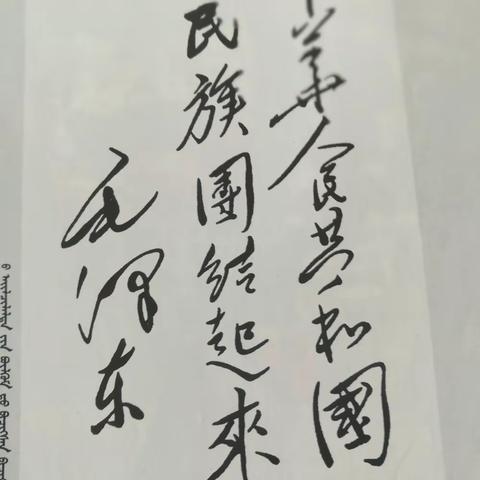 華人民共和國
民族團結起來
毛泽东